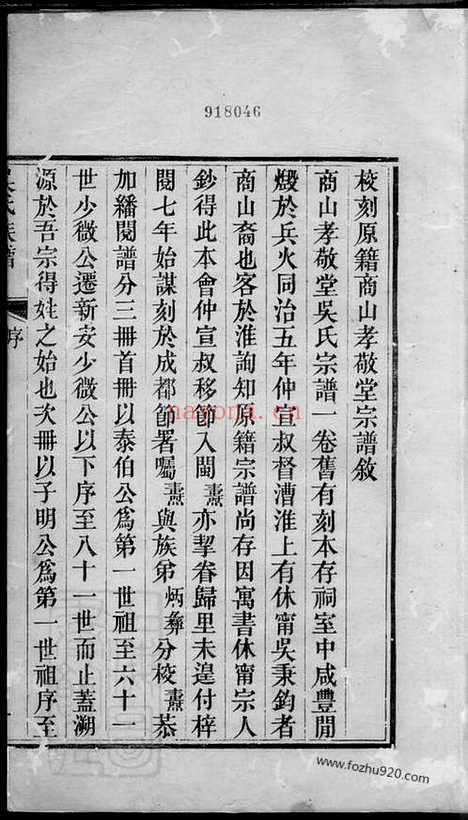 918046
校刻原籍商山孝敬堂宗譜敘
商山孝敬堂吳氏宗譜一卷舊有刻本存祠室中咸豐閒
燬於兵火同治五年仲宣叔督漕淮上有休甯吳秉鈞者
商山裔也客於淮詢知原籍宗譜尚存因寓書休甯宗人
鈔得此本會仲宣叔移節入閩燾亦挈眷歸里未遑付梓
閱七年始謀刻於成都節署囑燾與族弟炳彝分校燾恭
加繙閱譜分三冊首冊以泰伯公為第一世祖至六十一
世少微公遷新安少微公以下序至八十一世而止蓋溯
源於吾宗得姓之始也次冊以子明公為第一世祖序至
吳氏族譜
序
nayona.cn
www.fozhu920.com